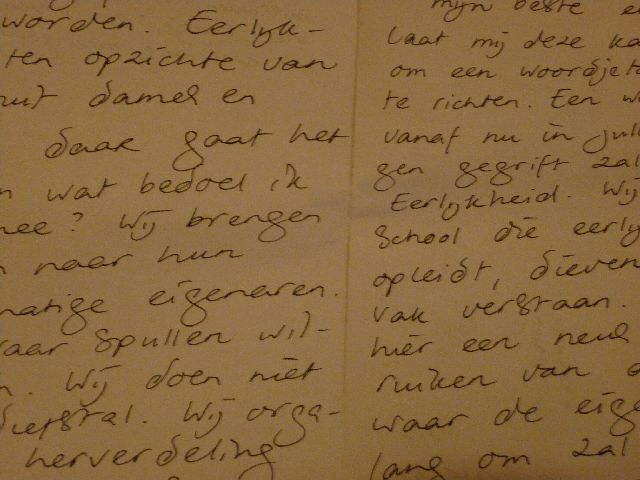 worden. Eerlijk-
ten opzichte van
uit dames en
daar gaat het
n wat bedoel ik
mee? Wij brengen
n naar hun
matige eigenaren.
waar spullen wil-
n. Wij doen niet
diefstal. Wij orga-
herverdeling
mijn beste
laat mij deze ka
om een woordje t
te richten. Een w
vanaf nu in jull
gen gegrift zal
Eerlijkheid. Wij
School die eerlij
opleidt, dieven
vak verstaan.
hier een neus
ruiken van
waar de eige
lang om zal